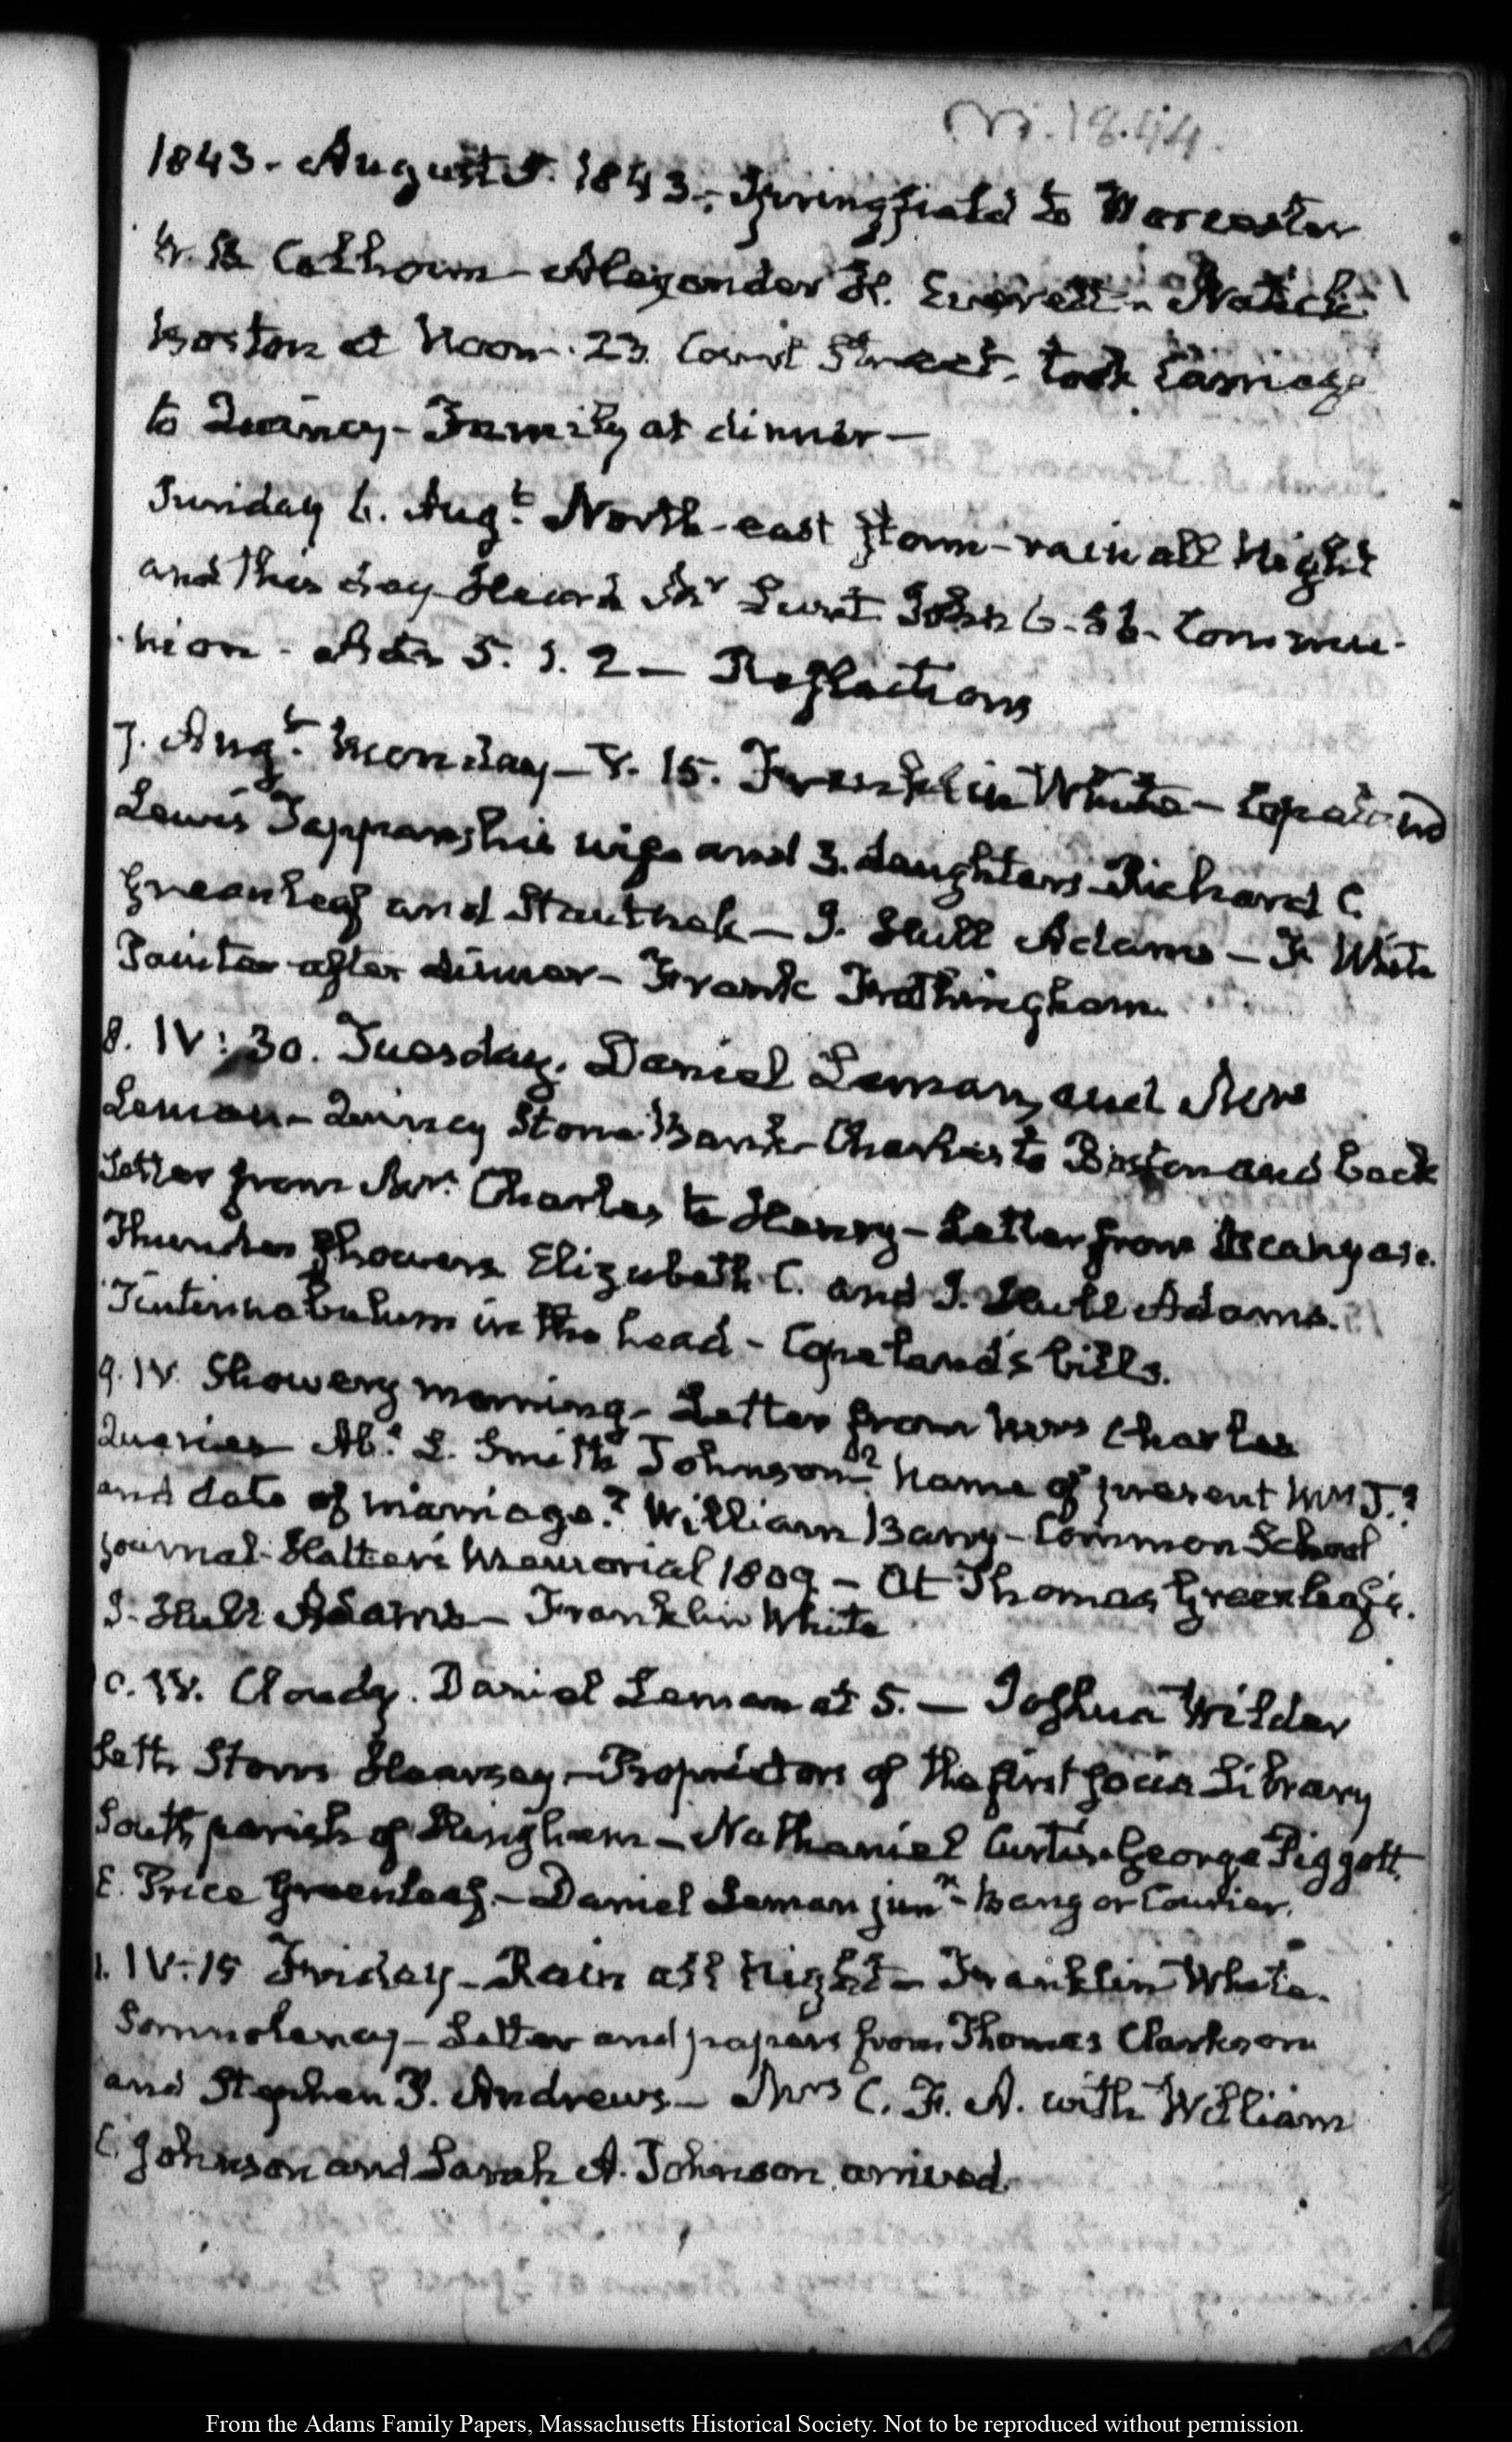 VI. 18.44.
1843. August 5. 1843. Springfield to Worcester
W. B. Calhoun - Alexander H. Everett - Natick
Boston at Noon. 23. Court Street. took Carriage
to Quincy - Family at dinner —
Sunday 6. Augt. North-east Storm - rain all Night
and this day Heard Mr Lunt John 6-56- Commu-
nion - Acts 5. 1. 2 — Reflections
7. Augt. Monday — V. 15. Franklin White - Copeland
Lewis Tappan, his wife and 3. daughters - Richard C.
Greenleaf and — I. Hull Adams — F. White
Painter after dinner - Frank Frothingham
8. IV: 30. Tuesday. Daniel Leman, and Mrs
Leman - Quincy Stone Bank - Charles to Boston and back
Letter from Mrs. Charles to Henry - Letter from
Thunder Showers Elizabeth C. and I. Hull Adams.
Tintinnabulum in the head - Copeland's bills.
9. IV. Showery morning - Letter from Mrs Charles
Queries Ab. L. Smith Johnson? Name of present Mrs J.?
and date of marriage? William Barry - Common School
Journal - Memorial 1809 - At Thomas Greenleaf's.
I. Hull Adams - Franklin White
10. IV. Cloudy. Daniel Leman at 5. — Joshua Wilder
Seth Hearsey - Proprietors of the first social Library
South parish of Hingham - Nathaniel Curtis - George Piggott.
E. Price Greenleaf. - Daniel Leman junr - Bangor Courier.
1. IV: 15 Friday - Rain all Night - Franklin White.
Somnolency - Letter and papers from Thomas Clarkson
and Stephen P. Andrews - Mrs C. F. A. with William
C. Johnson and Sarah A. Johnson arrived
From the Adams Family Papers, Massachusetts Historical Society. Not to be reproduced without permission.